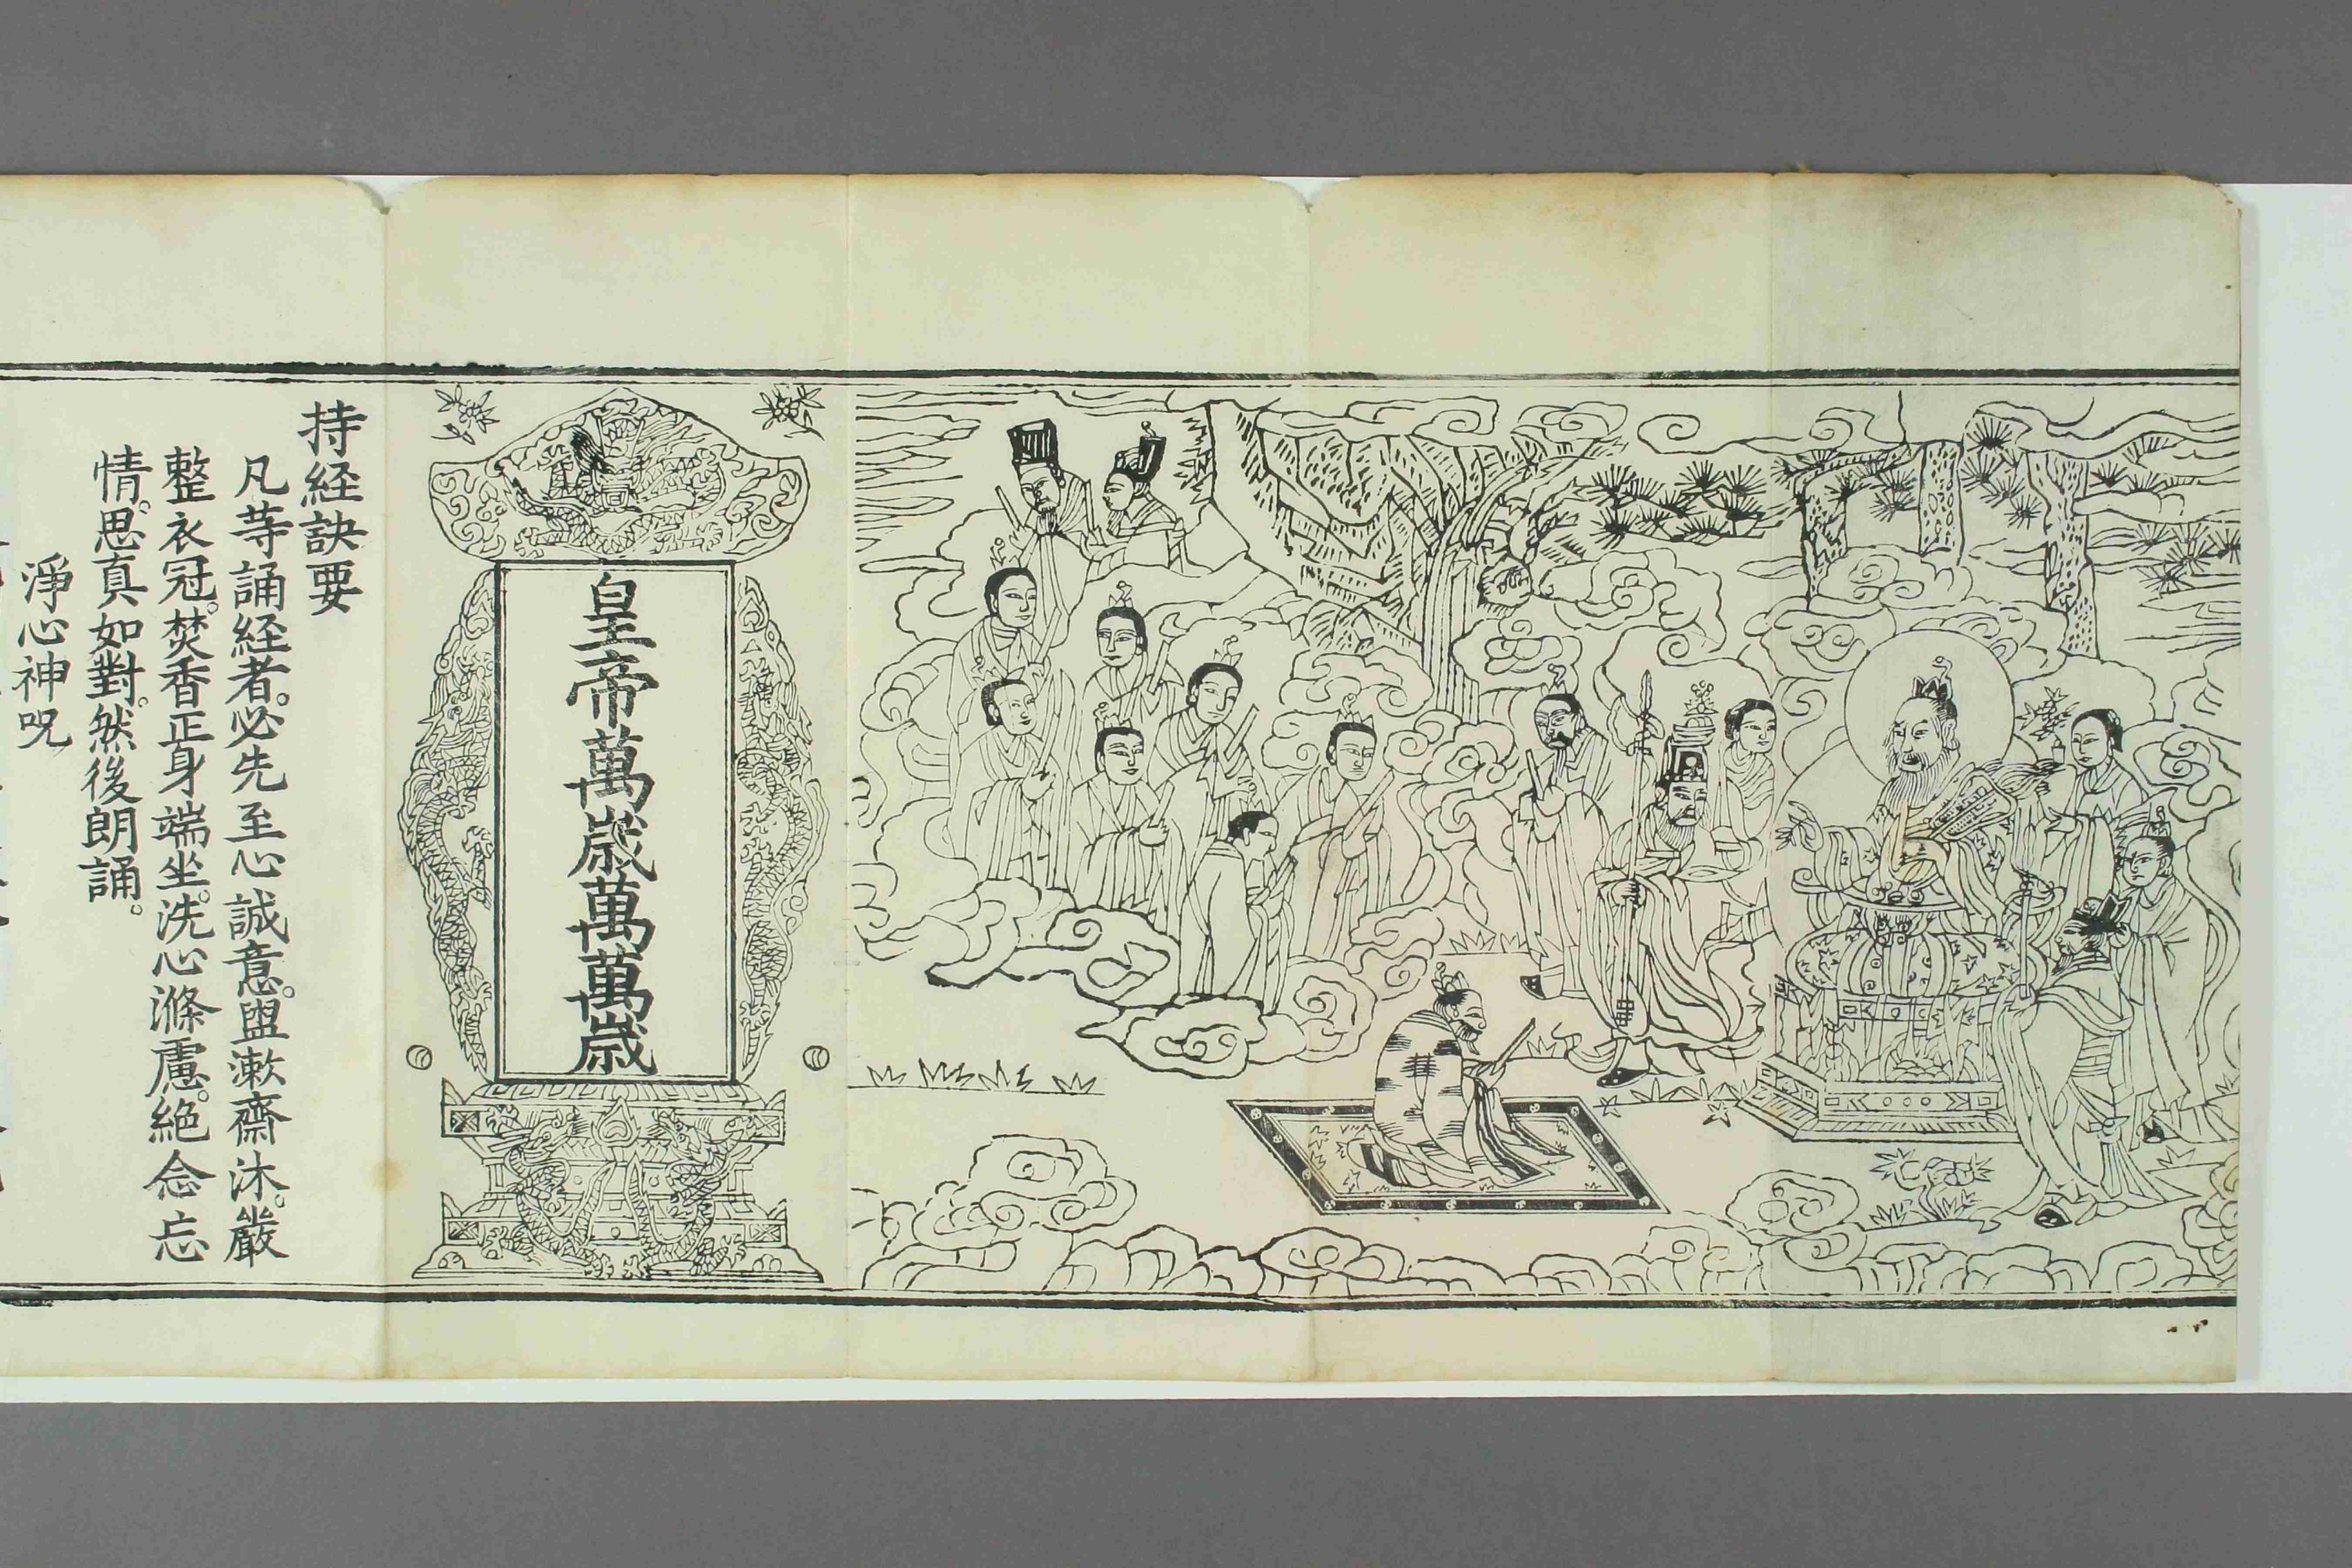 皇帝萬歲萬萬歲
持経訣要
凡䓁誦経者。必先至心誠意。盥漱齋沐。嚴
整衣冠。焚香正身端坐。洗心滌慮。絶念忘
情。思真如對。然後朗誦。
淨心神呪